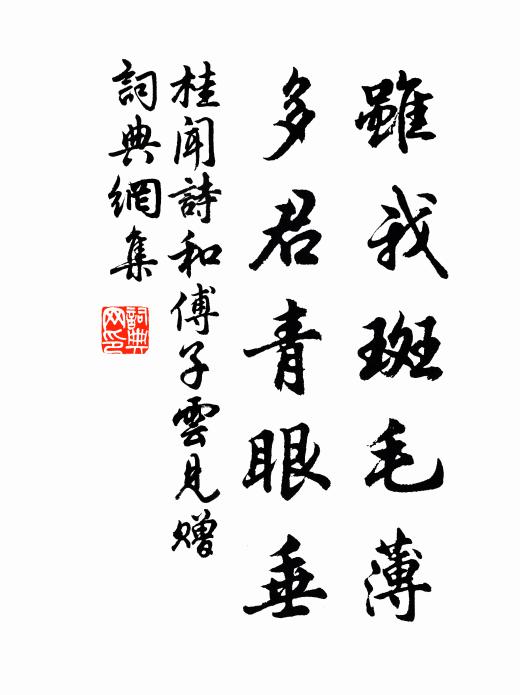 雖我斑毛薄
多君青眼垂
桂聞詩和傅子雲見贈
詞典網集
詞典网印